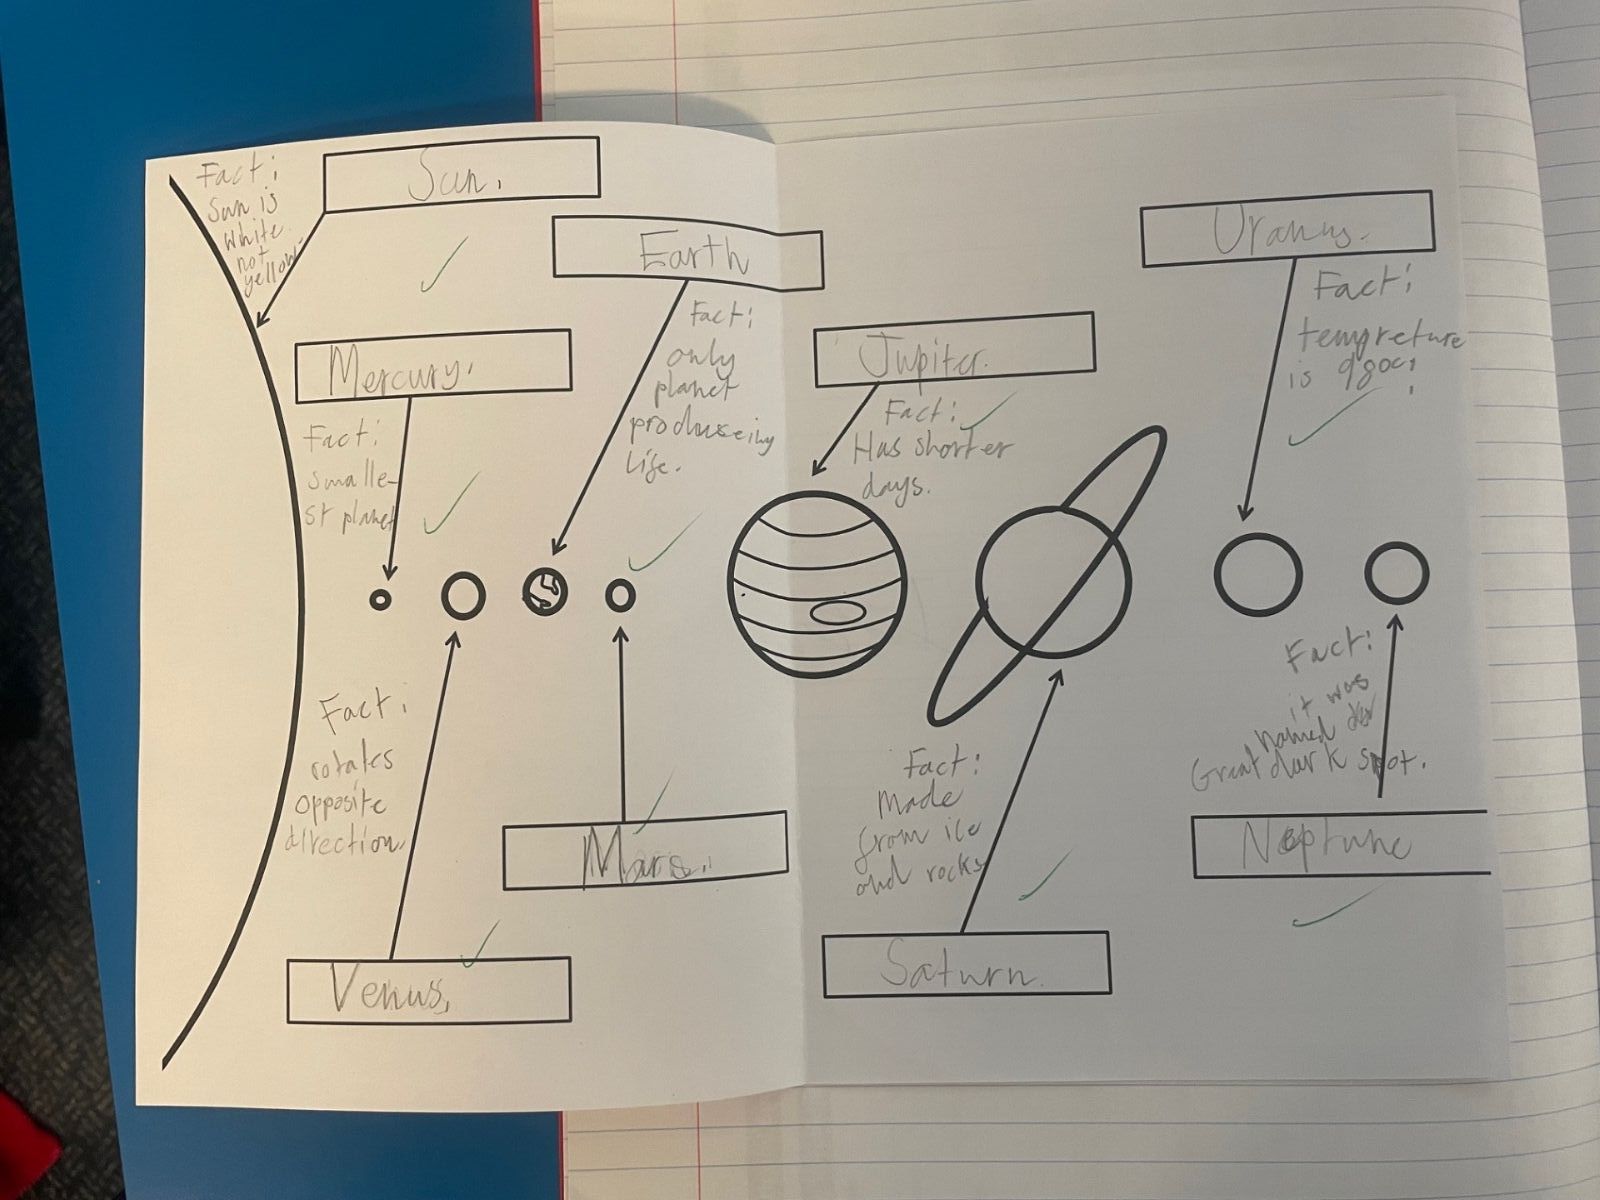 Sun.
Fact:
Sun is
white
not
yellow.
Earth
Fact:
only
planet
produseing
life.
Mercury.
Fact:
smalle-
st planet
Venus,
Fact:
rotates
opposite
direction.
Mars.
Jupiter.
Fact:
Has shorter
days.
Saturn.
Fact:
Made
from ice
and rocks
Uranus.
Fact:
tempreture
is
Neptune
Fact:
it was
Named
Great dark spot.